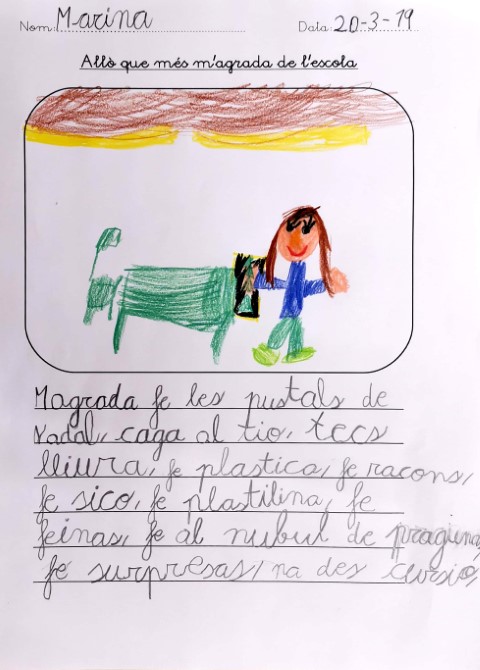 Nom: Marina Data: 20-3-19
Allò que més m'agrada de l'escola
Magrada fe les pustals de
Nadal, caga al tio, tecs
lliura, fe plastica, fe racons,
fe sico, fe plastilina, fe
feinas, fe al nubul de pragunas
fe surpresas, na des cursio,